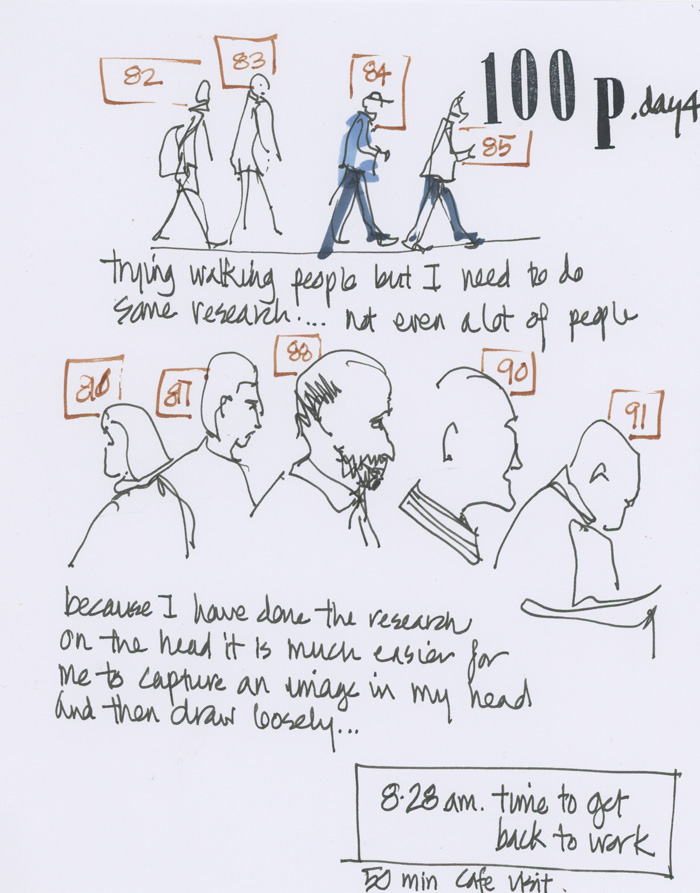 82
83
84
100 p. day 4
85
trying walking people but I need to do
some research.... not even a lot of people
86
87
88
90
91
because I have done the research
on the head it is much easier for
me to capture an image in my head
and then draw loosely...
8.28 am. time to get
back to work
50 min cafe visit.